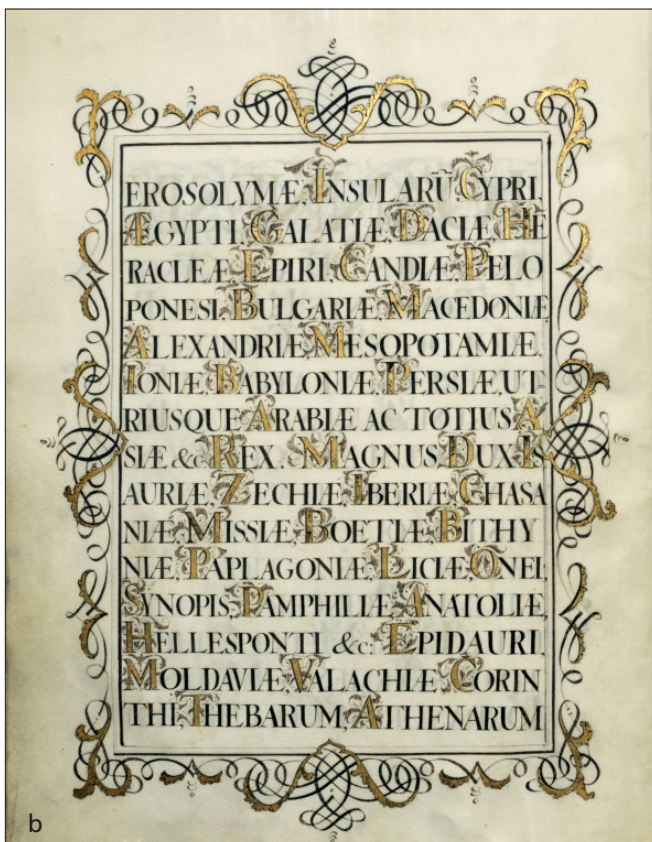 EROSOLYMÆ, INSULARŪ CYPRI,
ÆGYPTI, GALATIÆ, DACIÆ, HE
RACLEÆ EPIRI, CANDIÆ, PELO
PONESI, BULGARIÆ, MACEDONIÆ
ALEXANDRIÆ, MESOPOTAMIÆ,
IONIÆ, BABYLONIÆ, PERSIÆ, UT-
RIUSQUE ARABIÆ AC TOTIUS A
SIÆ &c REX. MAGNUS DUX IS
AURIÆ, ZECHIÆ, IBERIÆ, CHASA
NIÆ, MISSIÆ, BOETIÆ, BITHY
NIÆ, PAPLAGONIÆ, LICIÆ, ONEI
SYNOPIS, PAMPHILIÆ, ANATOLIÆ,
HELLESPONTI &c: EPIDAURI,
MOLDAVIÆ, VALACHIÆ, CORIN
THI, THEBARUM, ATHENARUM
b